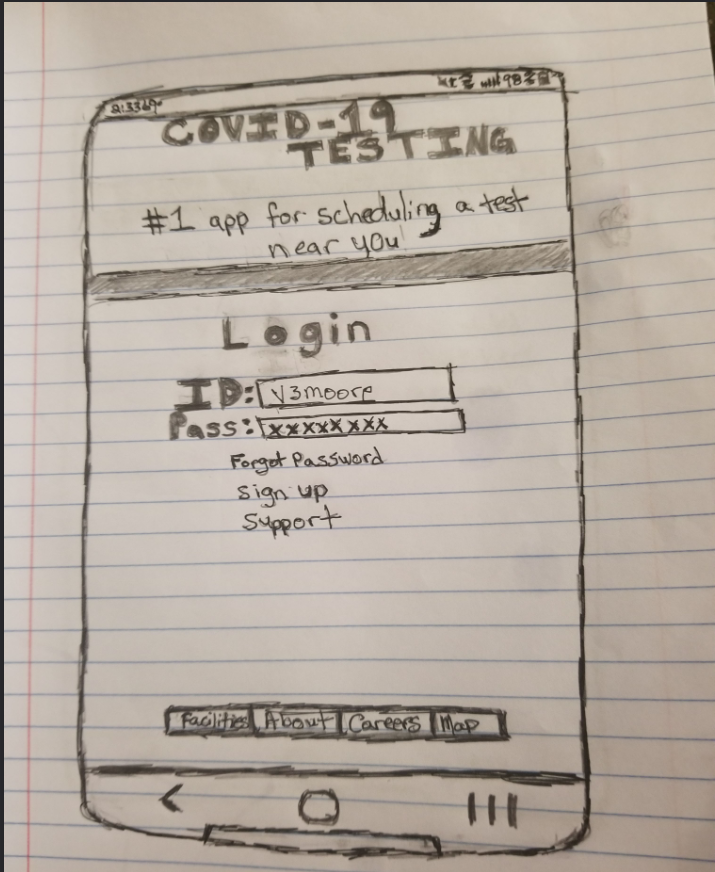 98%
COVID-19
TESTING
#1 app for scheduling a test
near you
Login
ID: v3moore
Pass: xxxxxxxx
Forgot Password
Sign up
Support
Facilities About Careers Map